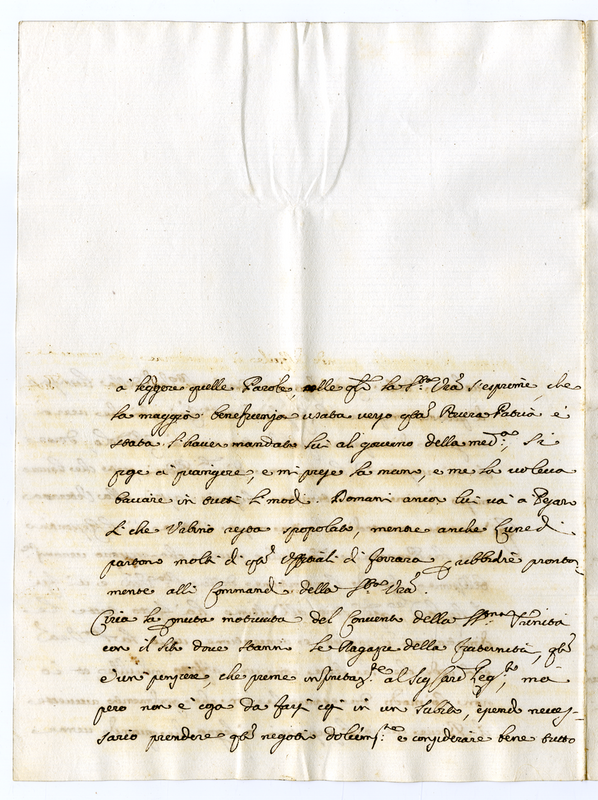 à leggere quelle Parole, nelle qli la Sta Vra s'esprime, che
la maggior beneficenza usata verso qsta Povera Patria è
stata l'haver mandato lui al governo della med.a, si
pose à piangere, e mi prese la mano, e me la voleva
baciare in tutti li modi. Domani ancor lui và a Pesaro
sì che Urbino resta spopolato, mentre anche Lunedì
partono molti di qsti Offitiali di Ferrara p ubbidire pronta-
mente alli Commandi della Sta Vra.
Circa la motivata del Convento della SSma Trinità
con il sito dove stanno le Ragazze della Fraternità, qsto
è un pensiere, che preme infinitam.te al Sig Card Leg.to, mà
però non è cosa da farsi così in un subito, essendo neces-
sario prendere qsti negotii dolcem.te e considerare bene tutto